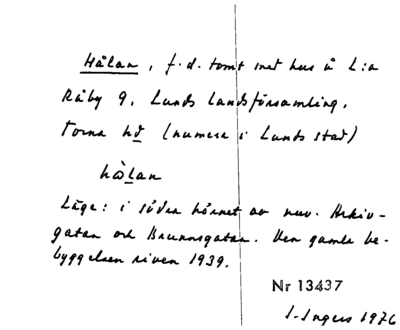 Hålan, f.d. tomt med hus å L:a
Råby 9, Lunds landsförsamling,
Torna hd (numera i Lunds stad)
hålan
Läge: i södra hörnet av nuv. Arkiv-
gatan och Brunnsgatan. Den gamla be-
byggelsen riven 1939.
Nr 13437
I. Ingers 1976